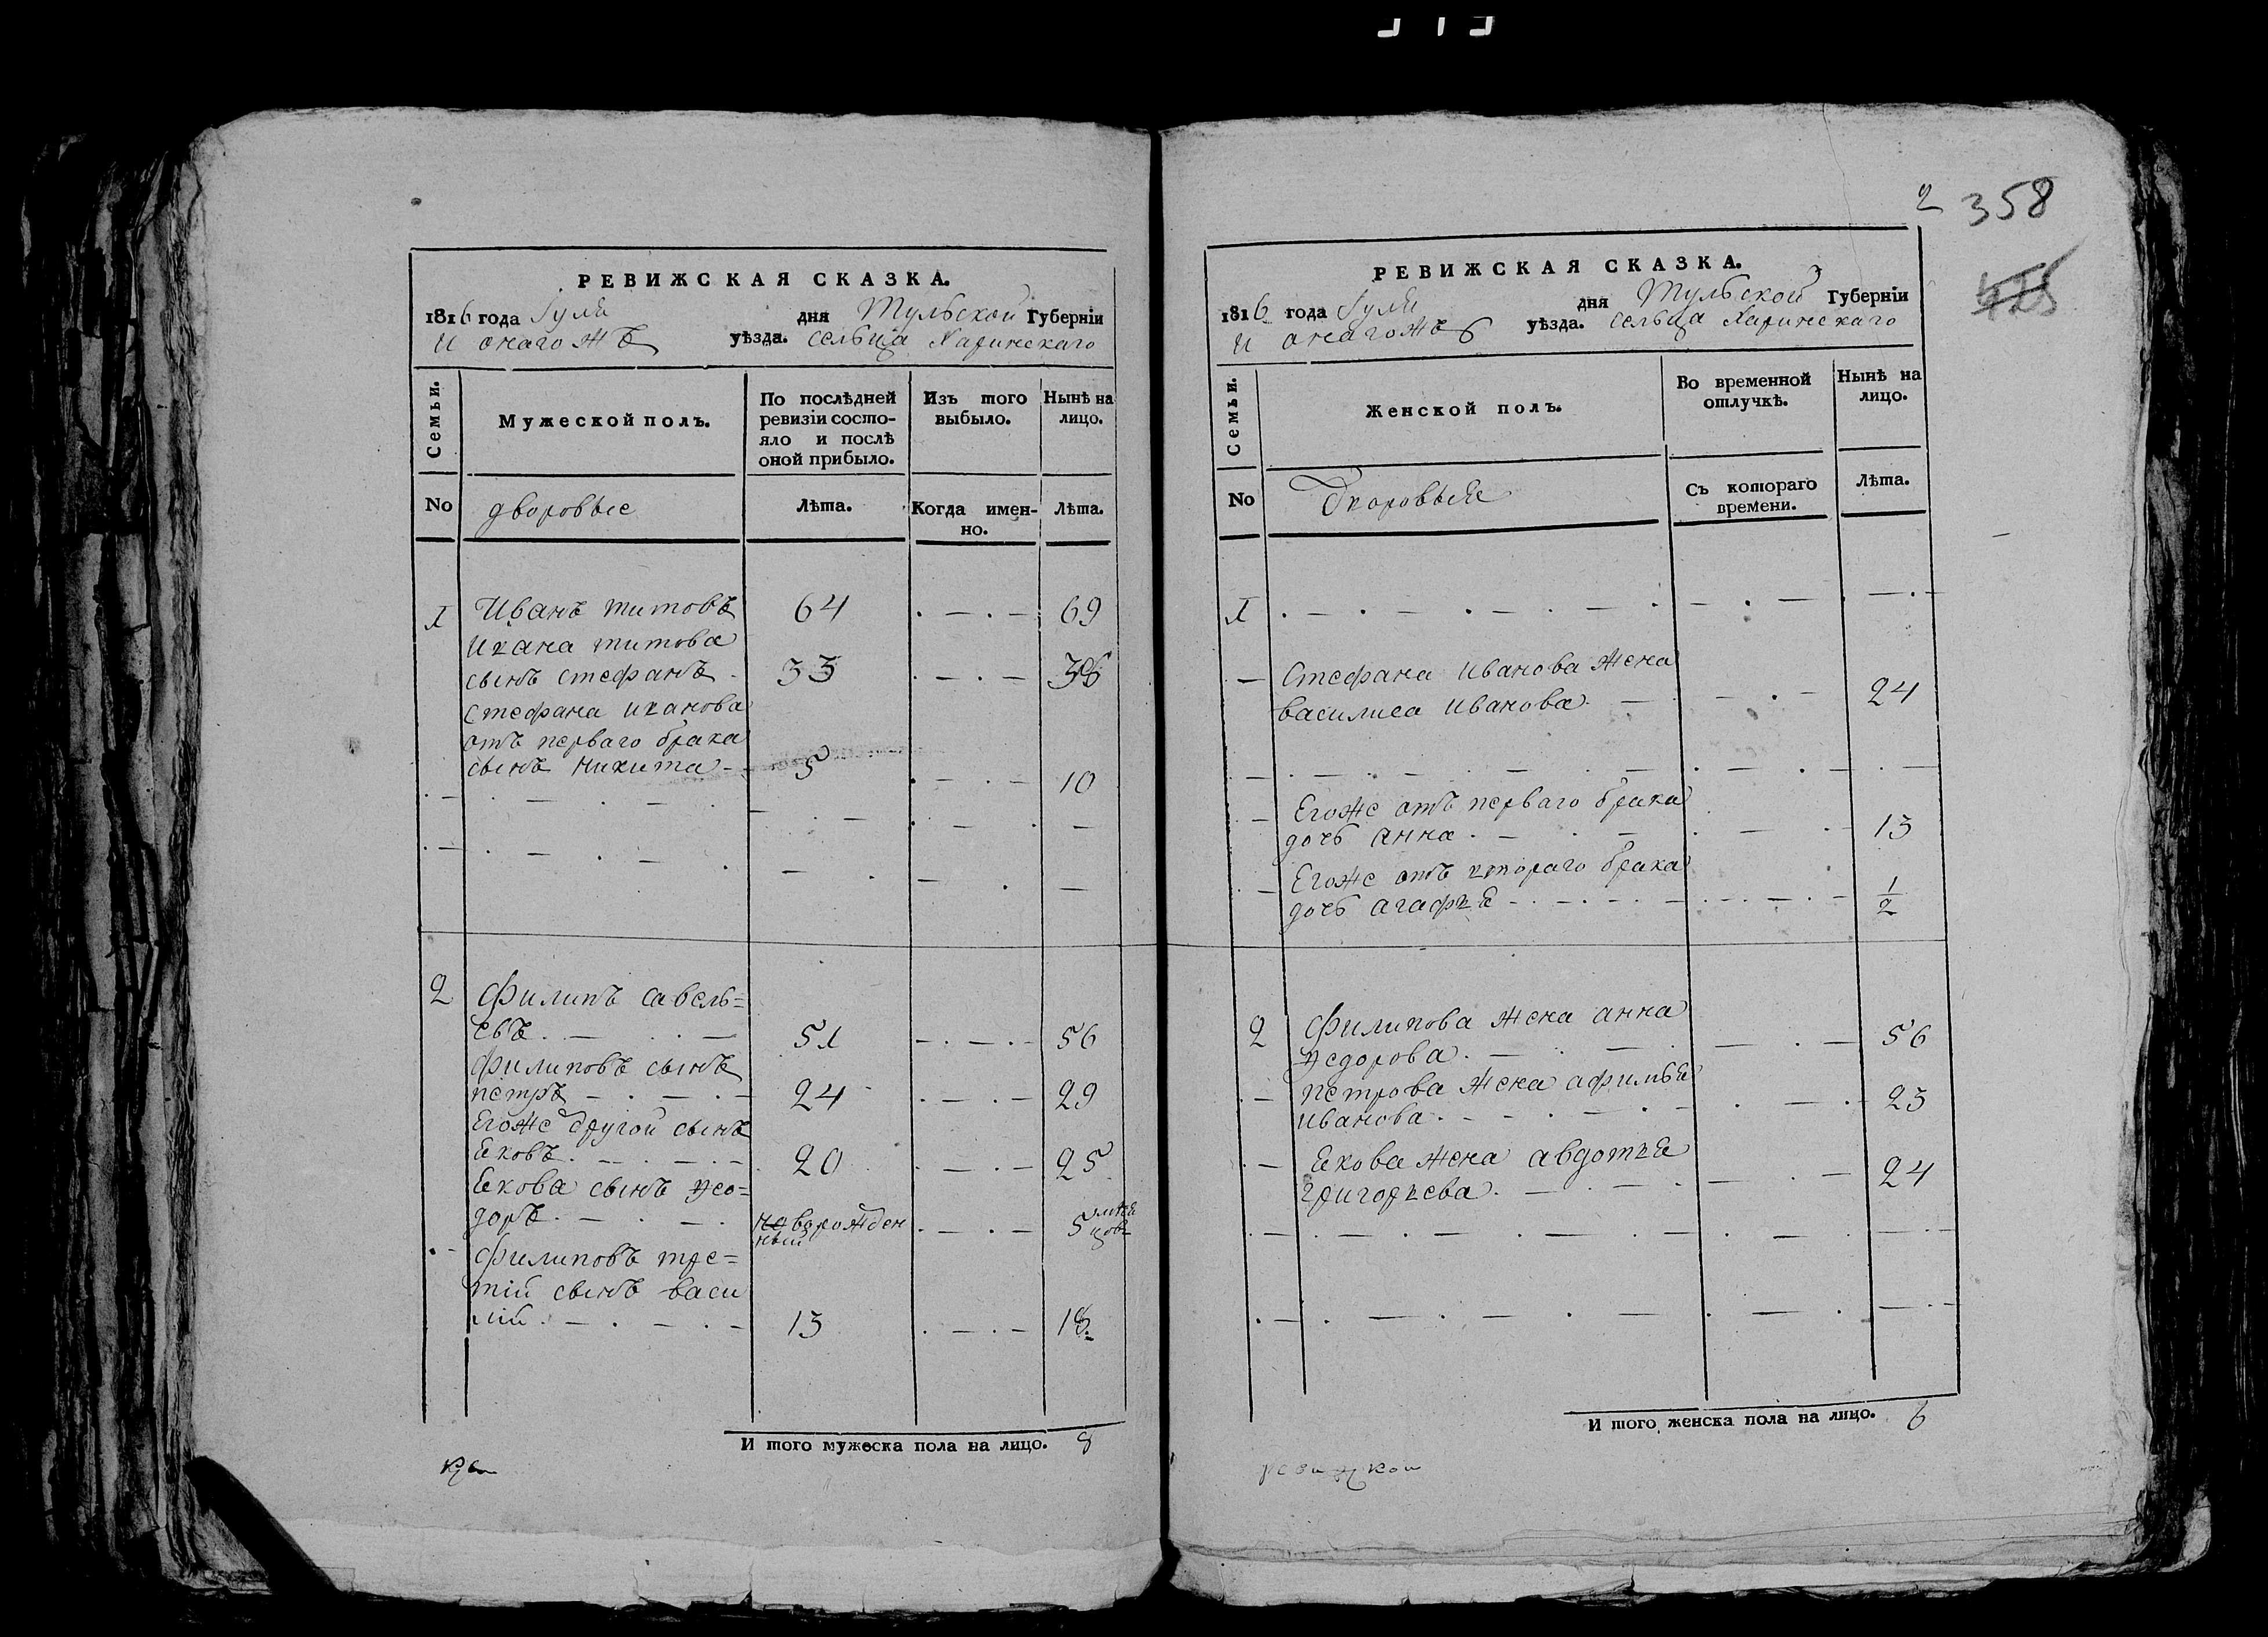 2 358
РЕВИЖСКАЯ СКАЗКА.
1816 года Iуля дня Тульской Губернiи
и онагожъ уѣзда. сельца Харинскаго
Семьи.
Мужеской полъ.
По послѣдней ревизiи состо-
яло и послѣ
оной прибыло.
Изъ того выбыло.
Нынѣ на лицо.
No дворовые Лѣта. Когда имен-
но. Лѣта.
1 Иванъ титовъ 64 69
Ивана титова
сынъ стефанъ 33 38
Стефана иванова
отъ перваго брака
сынъ никита 5 10
2 Филипъ савель=
евъ 51 56
Филиповъ сынъ
петръ 24 29
Егоже другой сынъ
Яковъ 20 25
Якова сынъ Ѳео=
доръ новорожден
ный 5 мѣся
цовъ
Филиповъ тре=
тiй сынъ васи
лiй 13 18
И того мужеска пола на лицо. 8
РЕВИЖСКАЯ СКАЗКА.
1816 года Iуля дня Тульской Губернiи
и онагожъ уѣзда. сельца Харинскаго
Семьи.
Женской полъ.
Во временной
отлучкѣ.
Нынѣ на
лицо.
No Дворовыя Съ котораго
времени. Лѣта.
1
Стефана Иванова жена
василиса Иванова 24
Егоже отъ перваго брака
дочь анна 13
Егоже отъ втораго брака
дочь агафья 1/2
2 Филипова жена анна
Ѳедорова 56
Петрова жена афимья
Иванова 23
Якова жена авдотья
григорьева 24
И того женска пола на лицо. 6
ревижкои